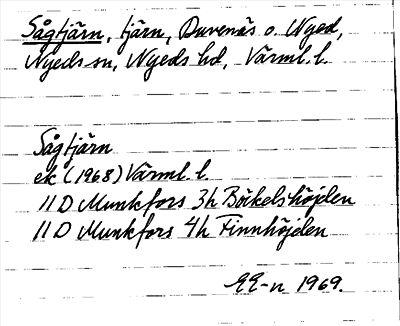 Sågtjärn, tjärn, Duvenäs o. Nyed,
Nyeds sn, Nyeds hd, Värml. l.
Sågtjärn
ek (1968) Värml. l.
11D Munkfors 3h Böckelshöjden
11D Munkfors 4h Finnhöjden
EE-n 1969.